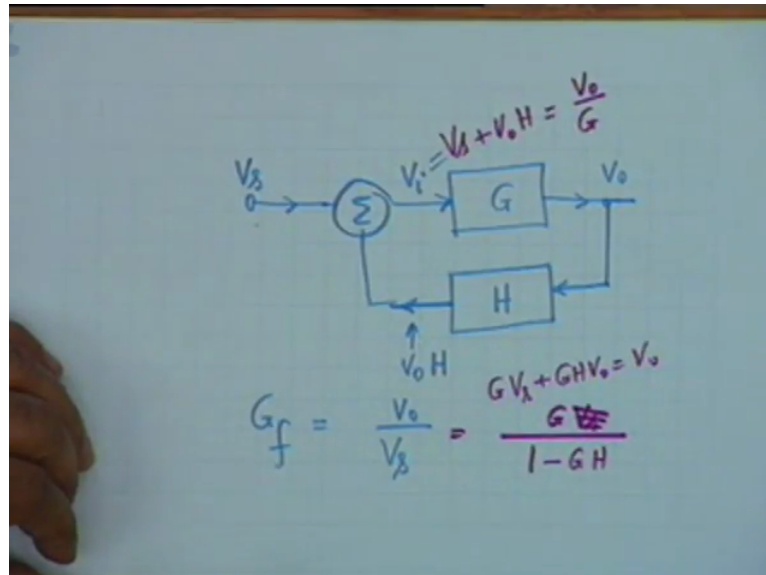 Vi = Vs + VoH = Vo/G
Vs
Σ
G
Vo
H
VoH
GVs + GHVo = Vo
Gf = Vo/Vs = G/(1 - GH)